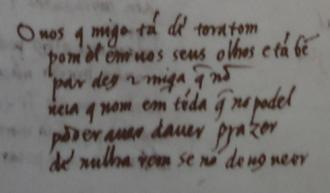 O uos q̃ migo tã dẽ toratom
pom dẽ em uos seus olhos e tã bẽ
par deꝯ amiga q̃ nõ
ueia q nom em tẽda q̃ no podel
põder auer dauer prazer
de nulha rem se nõ de uꝯ ueer